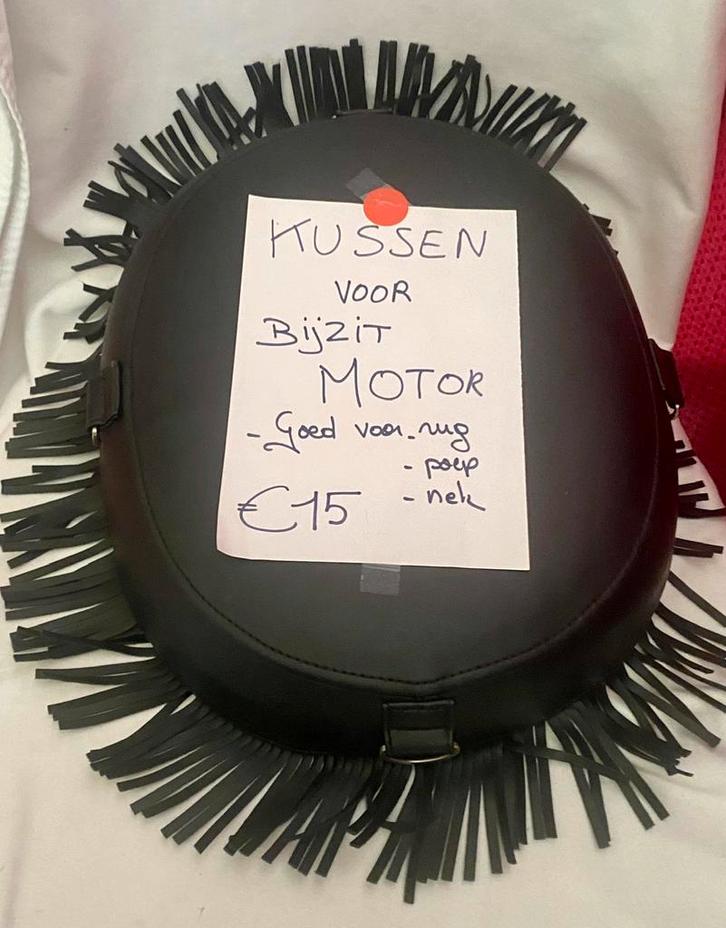 KUSSEN
VOOR
BijZiT
MOTOR
- Goed voor - rug
- poep
- nek
€15